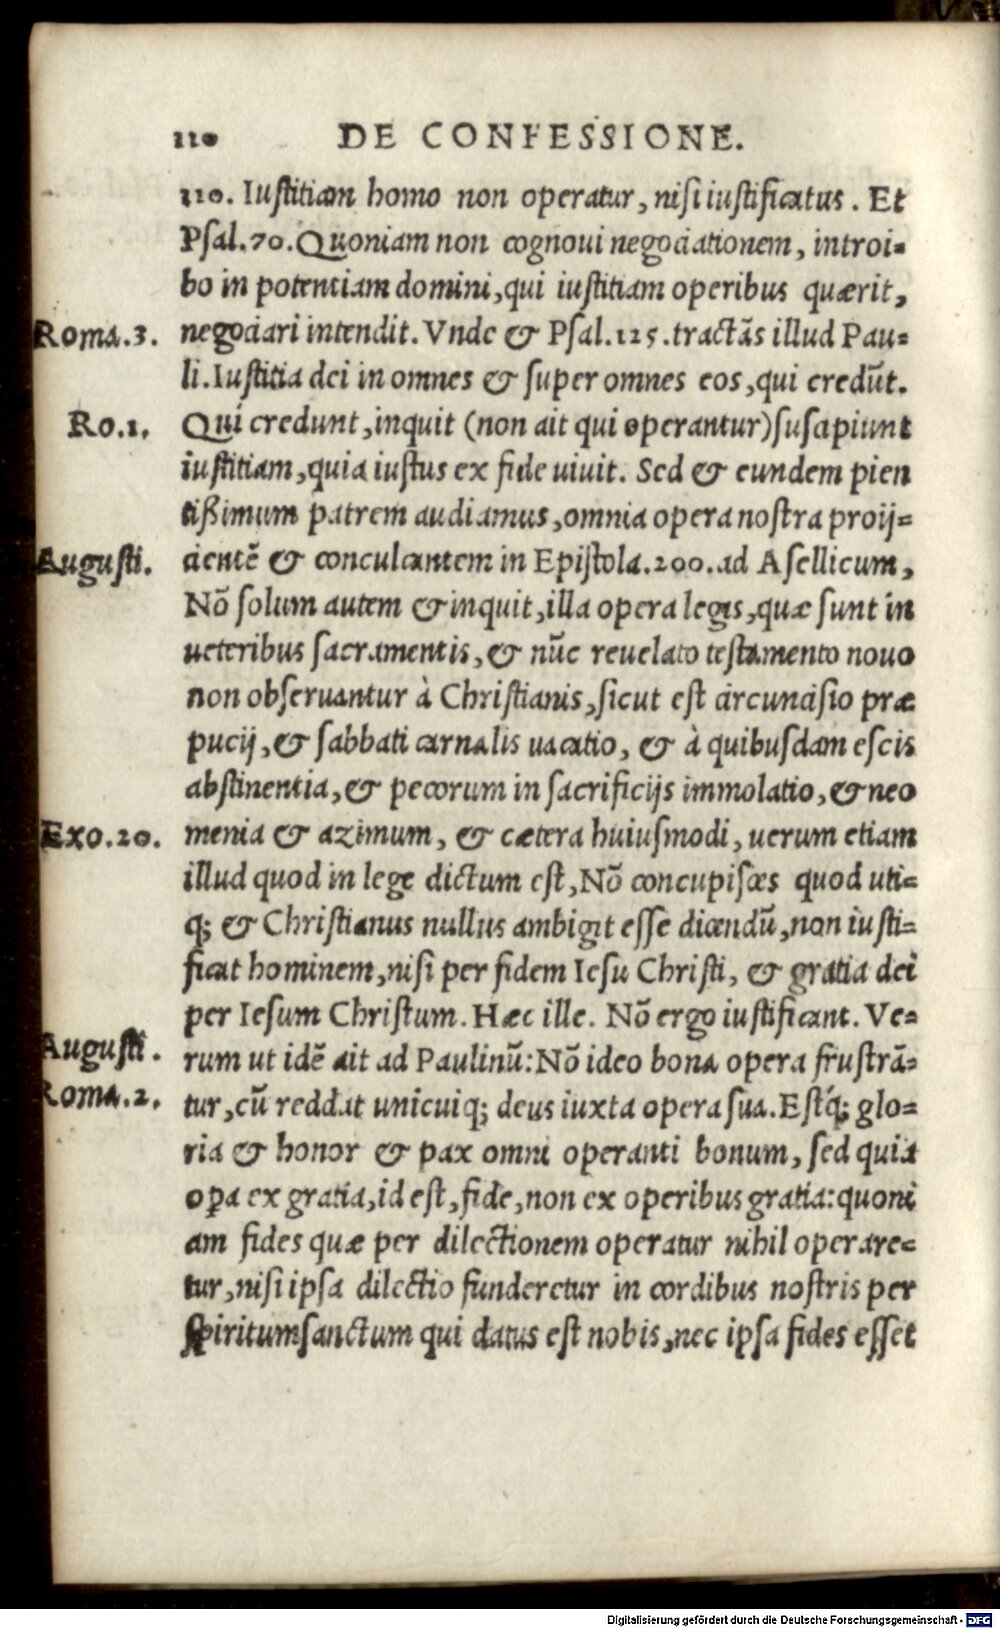 110 DE CONFESSIONE.
110. Iustitiam homo non operatur, nisi iustificatus. Et
Psal.70. Quoniam non cognoui negociationem, introi-
bo in potentiam domini, qui iustitiam operibus quærit,
Roma.3. negociari intendit. Vnde & Psal.125. tractãs illud Pau-
li. Iustitia dei in omnes & super omnes eos, qui credũt.
Ro.1. Qui credunt, inquit (non ait qui operantur) suscipiunt
iustitiam, quia iustus ex fide uiuit. Sed & eundem pien
tißimum patrem audiamus, omnia opera nostra proij-
Augusti. cientẽ & conculcantem in Epistola.200. ad Asellicum,
Nõ solum autem & inquit, illa opera legis, quæ sunt in
ueteribus sacramentis, & nũc reuelato testamento nouo
non obseruantur à Christianis, sicut est circuncisio præ
pucij, & sabbati carnalis uacatio, & à quibusdam escis
abstinentia, & pecorum in sacrificijs immolatio, & neo
Exo.20. menia & azimum, & cætera huiusmodi, uerum etiam
illud quod in lege dictum est, Nõ concupisces quod uti-
q; & Christianus nullus ambigit esse dicendũ, non iusti-
ficat hominem, nisi per fidem Iesu Christi, & gratia dei
per Iesum Christum. Hæc ille. Nõ ergo iustificant. Ve-
Augusti. rum ut idẽ ait ad Paulinũ: Nõ ideo bona opera frustrã-
Roma.2. tur, cũ reddat unicuiq; deus iuxta opera sua. Estq́; glo-
ria & honor & pax omni operanti bonum, sed quia
oꝑa ex gratia, id est, fide, non ex operibus gratia: quoni
am fides quæ per dilectionem operatur nihil operare-
tur, nisi ipsa dilectio funderetur in cordibus nostris per
spiritumsanctum qui datus est nobis, nec ipsa fides esset
Digitalisierung gefördert durch die Deutsche Forschungsgemeinschaft - DFG